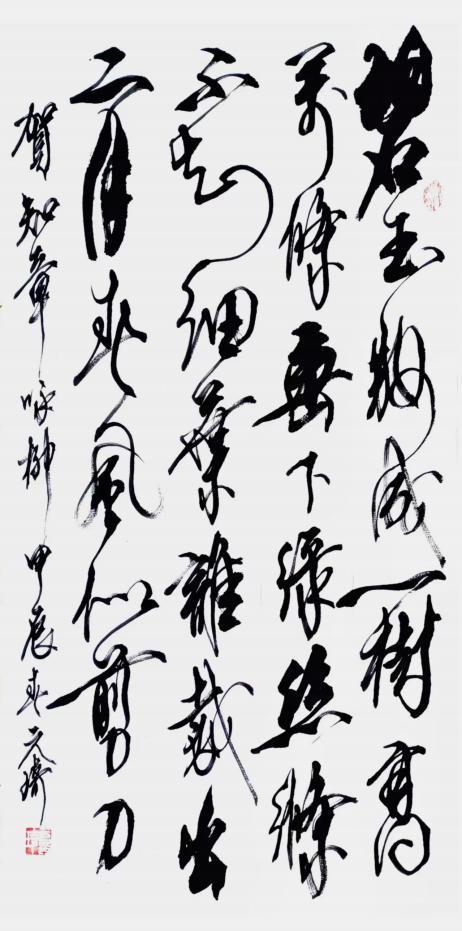 碧玉妝成一樹高
萬條垂下綠絲縧
不知細葉誰裁出
二月春風似剪刀
賀知章咏柳 甲辰春元